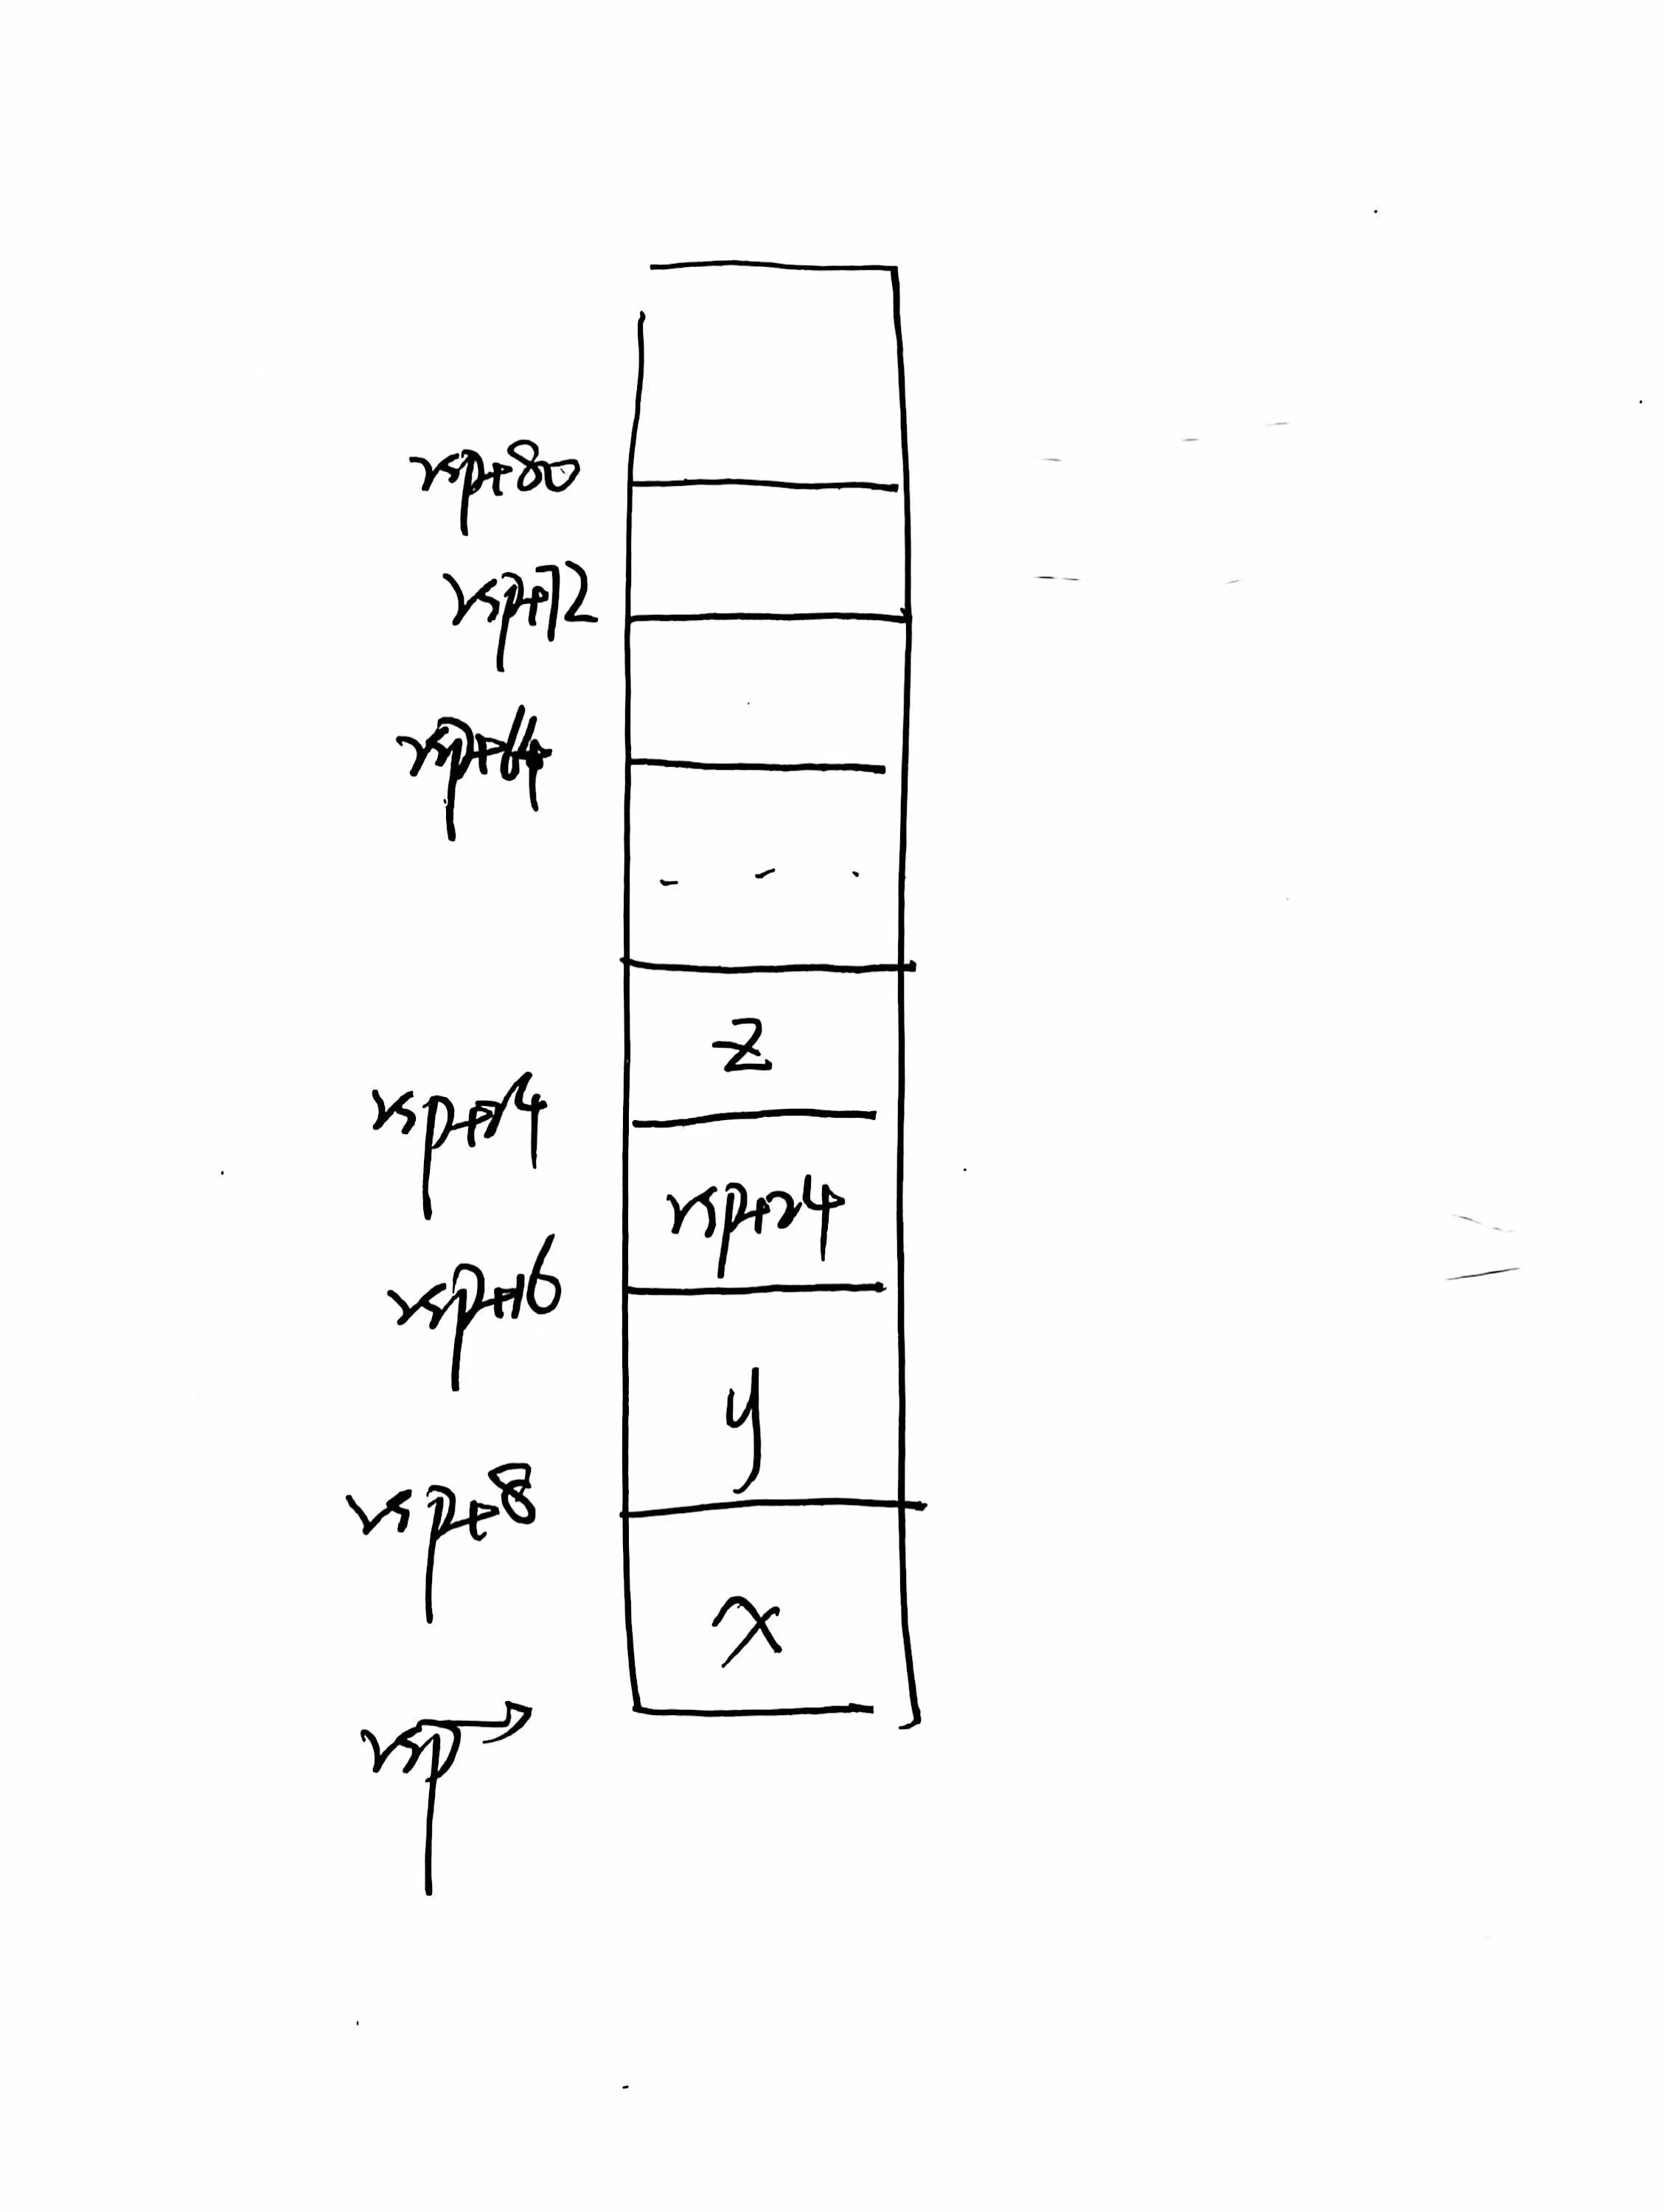 rsp+80
rsp+72
rsp+64
z
rsp+24
rsp+24
rsp+16
y
rsp+8
x
rsp